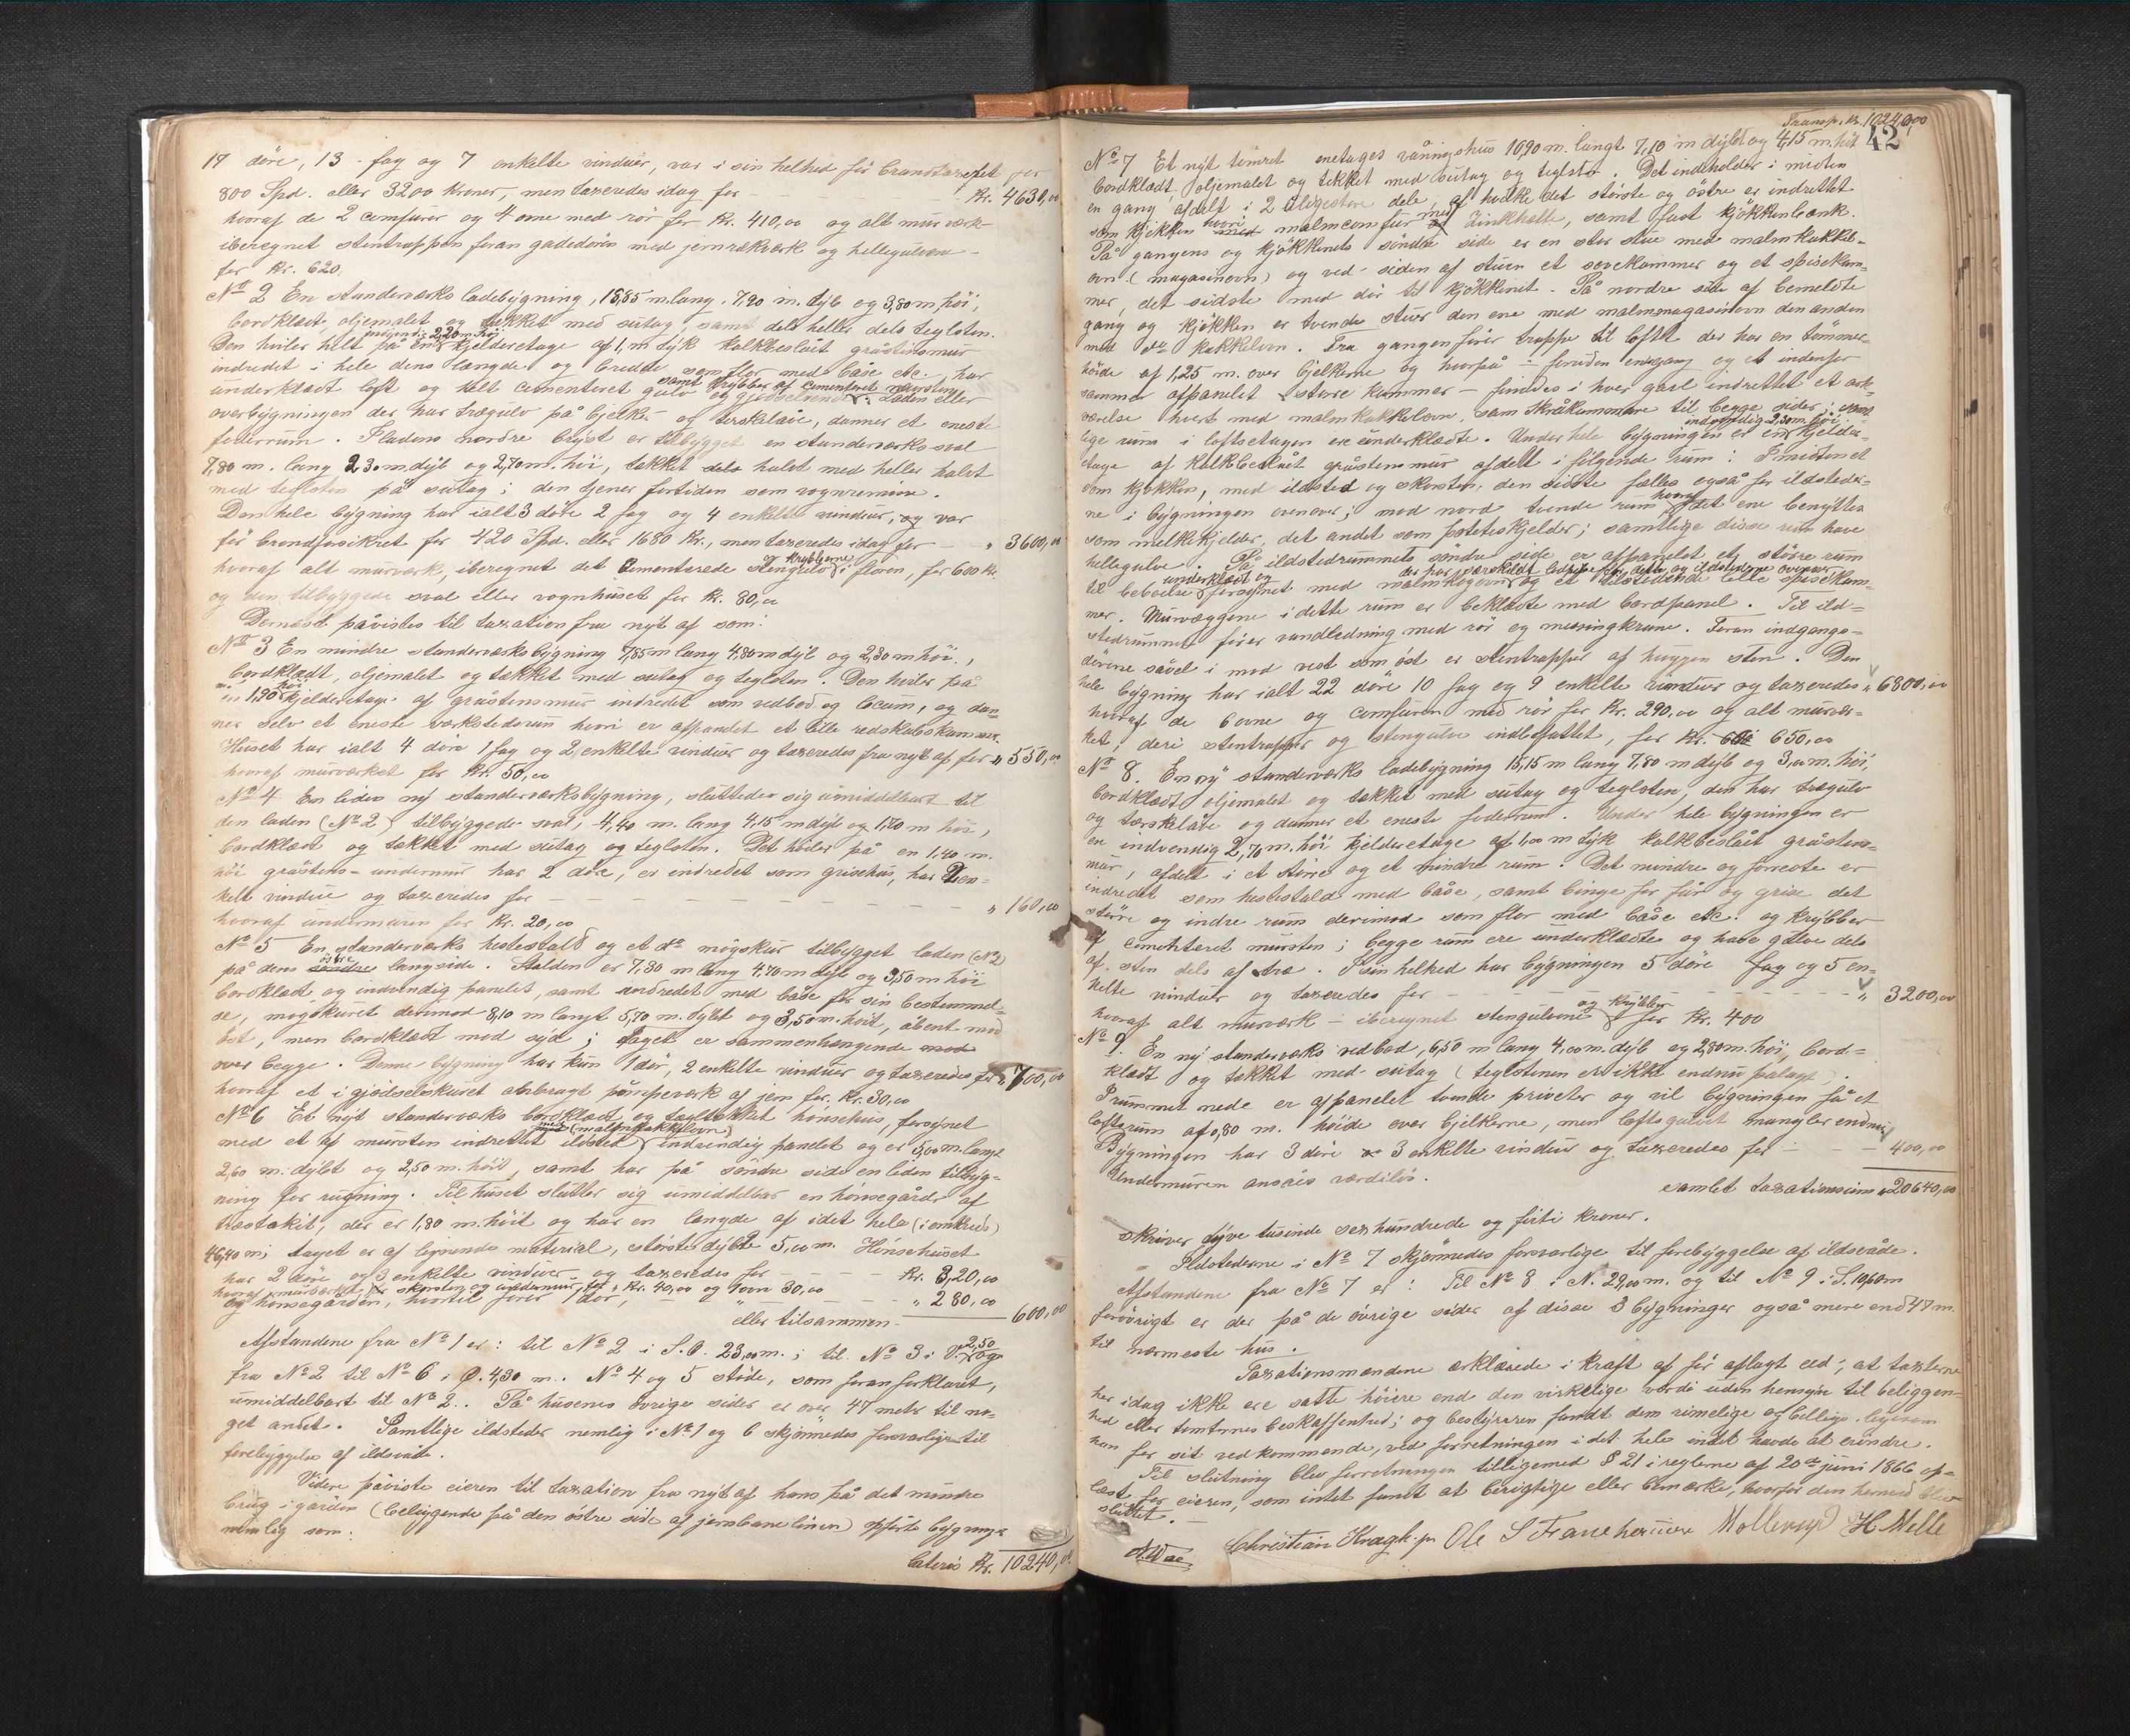 17 döre, 13 fag og 7 enkelte vinduer, var i sin helhed för brandtaxeret for
800 Spd. eller 3200 Kroner, men taxeredes idag for – Kr. 4630,00
hvoraf de 2 comfurer og 4 ovne med rör for Kr. 410,00 og alt murværk
iberegnet stentrappen foran gadedören med jernrækværk og hellegulvene
for Kr. 620.
No 2 En standerværks ladebÿgning, 15,85 m lang, 7,20 m. dÿb og 3,80 m. höi,
bordklædt, oljemalet og tækket med sutag, samt dels heller dels teglsten.
Den hviler helt på en indvendig 2,20 m. höi kjelderetage af 1, m tÿk kalkbeslåit gråstensmur
indredet i hele dens længde og bredde som flor med båse etc., har
underklædt loft og helt cementeret gulv samt krÿbber af cementeret mursten
overbÿgningen der har trægulv på bjelker og terskelåve, danner et eneste
foderrum. Pladens nordre brÿst er tilbÿgget en standerværks sval
7,80 m. lang 2,30 m. dÿb og 2,70 m. höi, tækket dels halvt med heller halvt
med teglsten på sutag; den tjener fortiden som vognremise.
Den hele bÿgning har ialt 3 döre 2 fag og 4 enkelte vinduer, og var
för brandforsikret for 420 Spd. eller 1680 Kr., men taxeredes idag for – " 3600,00
hvoraf alt murværk, iberegnet det cementerede stengulv og krÿbberne i floren, for 600 Kr.
og den tilbÿggede sval eller vognhuset for Kr. 80,00
Dernæst påvistes til taxation fra nÿt af som:
No 3 En mindre standerværksbÿgning 7,85 m lang 4,80 m dÿb og 2,30 m höi,
bordklædt, oljemalet og tækket med sutag og teglsten. Den hviler på
en 1,90 m höi kjelderetage af gråstensmur indredet som vedbod og locum, og dan-
ner selv et eneste værkstedsrum hvori er afpanelet et lille redskabskammer.
Huset har ialt 4 döre 1 fag og 2 enkelte vinduer og taxeredes fra nÿt af, for " 550,00
hvoraf murværket for Kr. 50,00
No 4 En liden nÿ standerværksbÿgning, slutteder sig umiddelbart til
den laden (No 2) tilbÿggede sval, 4,40 m. lang 4,15 m dÿb og 1,80 m höi,
bordklædt og tækket med sutag og teglsten. Det hviler på en 1,40 m.
höi gråstens-undermur har 2 döre, er indredet som grisehus, har 2 en-
kelt vindue og taxeredes for – " 160,00
hvoraf undermuren for Kr. 20,00
No 5 En standerværks hestestald og et do mögskur tilbÿgget laden (No 2)
på dens söndre östre langside. Stalden er 7,30 m lang 4,70 m dÿb og 3,50 m höi
bordklædt og indvendig panelet, samt indredet med båse for sin bestemmel-
se, mögskuret derimod 8,10 m langt 5,70 m. dÿbt og 3,50 m. höit, åbent mod
öst, men bordklædt mod sÿd; taget er sammenhængende med
over begge. Denne bÿgning har kun 1 dör, 2 enkelte vinduer og taxeredes for " 700,00
hvoraf et i gjödselskuret anbragt pumpeværk af jern for Kr. 30,00
No 6 Et nÿt standerværks bordklædt og tegltækket hönsehus, forsÿnet
med et af mursten indrettet ildsted med (malmkakkelovn) indvendig panelet og er 5,00 m. langt
2,60 m. dÿbt og 2,50 m. höit, samt har på söndre side en liden tilbÿg-
ning for rugning. Til huset slutter sig umiddelbar en hönsegård af
træstakit, der er 1,80 m. höit og har en længde af idet hele (i omkreds)
46,40 m; taget er af lignende material, största dÿbde 5,00 m. Hönsehuset
har 2 döre og 3 enkelte vinduer og taxeredes for – Kr. 320,00
hvoraf murværket skorsten og undermur for Kr. 40,00 og 1 ovn 30,00
og hönsegården, hvortil förer 1 dör, – " 280,00
eller tilsammen 600,00
Afstandene fra No 1 er: til No 2 i S.O. 23,00 m.; til No 3 i V. 2,50 og
fra No 2 til No 6 i O. 4,30 m. No 4 og 5 stöde, som foran forklaret,
umiddelbart til No 2. På husenes övrige sider er over 47 metr til no-
get andet. Samtlige ildsteder nemlig i No 1 og 6 skjönnedes forsvarlige til
forebÿggelse af ildsvåde.
Videre påviste eieren til taxation fra nÿt af hans på det mindre
brug i gården (beliggende på den östre side af jernbanelinien) opförte bÿgninger
nemlig som:
Lateris Kr. 10240,00
Transp. Kr. 10240,00
42
No 7 Et nÿt tömret enetages våningshus 10,90 m. langt 7,10 m dÿbt og 4,15 m. höit
bordklædt, oljemalet og tækket med sutag og teglsten. Det indeholder i midten
en gang afdelt i 2 ulige store dele, af hvilke det störste og östre er indrettet
som kjökken hvori malmcomfur med Zinkhætte, samt fast kjökkenbænk.
På gangens og kjökkenets söndre side er en stor stue med malmkakkel-
ovn (magasinovn) og ved siden af stuen et sovekammer og et spisekam-
mer, det sidste med dör til kjökkenet. På nordre side af bemeldte
gang og kjökken er tvende stuer den ene med malmmagasinovn den anden
med do kakkelovn. Fra gangen förer trappe til loftet der har en tömmer-
höide af 1,25 m. over bjelkerne og hvorpå – foruden engang og et indenfor
samme afpanelet större kammer – findes i hver gavl indrettet et
værelse hvert med malmkakkelovn, samt skråkammere til begge sider; samt-
lige rum i loftsetagen ere underklædte. Under hele bÿgningen er en indvendig 2,30 m. höi kjelder-
etage af kalkbeslåit gråstensmur afdelt i fölgende rum: I midten et
som kjökken, med ildsted og skorsten, den sidste fælles også for ildstederne
ne i bÿgningen ovenover; mod nord tvende rum hvoraf det ene benÿttes
som melkekjelder, det andet som poteteskjelder; samtlige disse rum have
hellegulve. På ildstedrummets söndre side er afpanelet et större rum
til beboelse underklædt og forsÿnet med malmkogeovn og et tilstödende lille spisekam-
mer. Murvæggene i dette rum er beklædte med bordpanel. Til ild-
stedrummet förer vandledning med rör og messingkrane. Foran indgangs-
dörene såvel i mod vest som öst er stentrapper af huggen sten. Den
hele bÿgning har ialt 22 döre 10 fag og 9 enkelte vinduer og taxeredes " 6800,00
hvoraf de 6 ovne og comfuren med rör for Kr. 290,00 og alt murvær-
ket, deri stentrapper og stengulve indbefattet, for Kr. 650,00
No 8. En nÿ standerværks ladebÿgning 15,15 m lang 7,80 m dÿb og 3,00 m. höi,
bordklædt, oljemalet og tækket med sutag og teglsten, den har trægulv
og tærskelåve og danner et eneste foderrum. Under hele bÿgningen er
en indvendig 2,70 m. höi kjelderetage af 1,00 m tÿk kalkbeslåit gråstens-
mur, afdelt i et större og et mindre rum. Det mindre og forreste er
indredet som hestestald med båse, samt binge for får og grise det
större og indre rum derimod som flor med båse etc. og krÿbber
af cementeret mursten; begge rum ere underklædte og have gulve dels
af sten dels af træ. I sin helhed har bÿgningen 5 döre fag og 5 en-
kelte vinduer og taxeredes for – " 3200,00
hvoraf alt murværk – iberegnet stengulvene og krÿbber for Kr. 400
No 9. En nÿ standerværks vedbod, 6,50 m lang 4,00 m. dÿb og 2,80 m. höi, bord-
klædt og tækket med sutag (teglstenen er ikke endnu pålagt).
I rummet nede er afpanelet tvende priveter og vil bÿgningen få et
loftsrum af 0,80 m. höide over bjelkerne, men loftsgulvet mangler endnu
Bÿgningen har 3 döre 3 enkelte vinduer og taxeredes for – 400,00
Undermuren ansåes værdilös.
samlet taxationssum " 20640,00
skriver tÿve tusinde sexhundrede og firti kroner.
Ildstederne i No 7 skjönnedes forsvarlige til forebÿggelse af ildsvåde.
Afstandene fra No 7 er: Til No 8 i N. 29,00 m. og til No 9 i S. 19,60 m
forövrigt er der på de övrige sider af disse 3 bÿgninger også mere end 47 m.
til nærmeste hus.
Taxationsmændene erklærede i kraft af för aflagt eed, at taxterne
her idag ikke ere satte höiere end den virkelige værdi uden hensÿn til beliggen-
hed eller tomternes beskaffenhed; og bestÿreren fandt dem rimelige og billige, ligesom
han for sit vedkommende, ved forretningen i det hele intet havde at erindre.
Til slutning blev forretningen tilligemed § 21 i reglerne af 20de juni 1866 op-
læst for eieren, som intet fandt at berigtige eller bemærke, hvorfor den hermed blev
sluttet.
Christian Kragh. Ole S Mollerup H. Melle